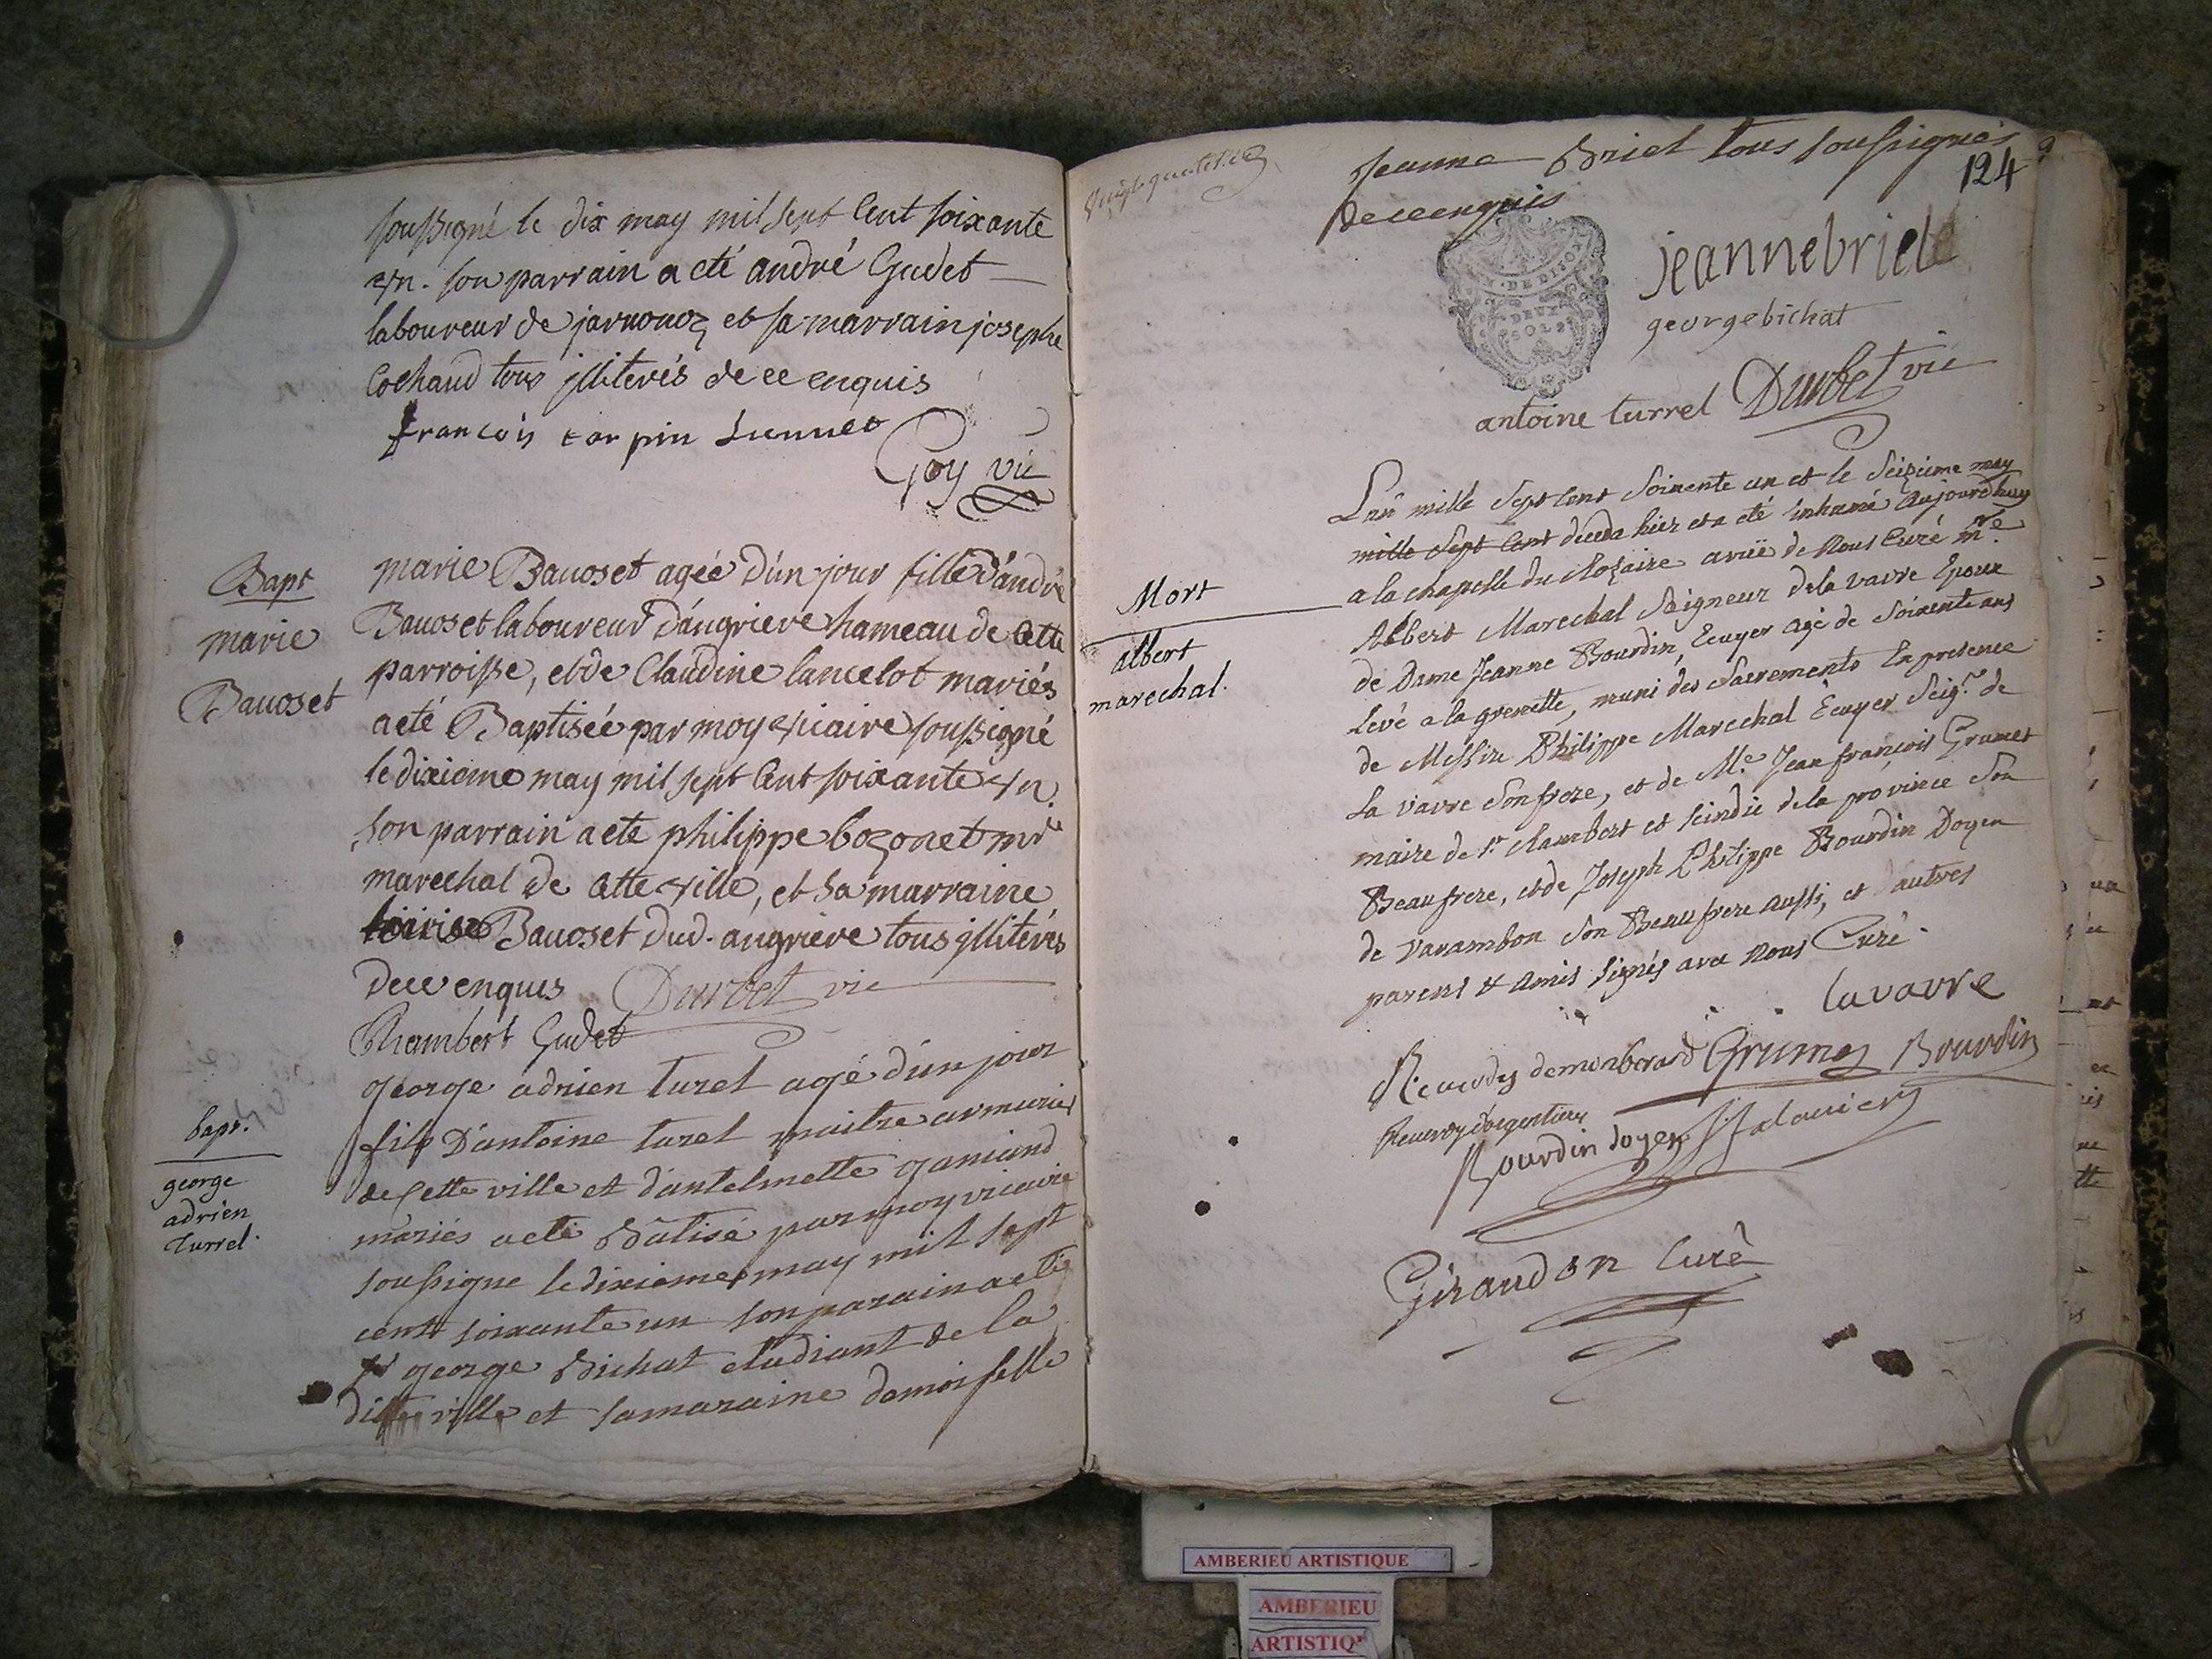 soussigné le dix may mil sept Cent soixante
vn. son parrain a eté andré Gudet
laboureur de jarnonoz et sa marrain josephe
Cochaud tous jlliterés de ce enquis
françois carpin
Goy vic
Bapt
marie
Bauoset
marie Bauoset agée d'un jour fille d'andré
Bauoset laboureur d'angriere hameau de Cette
parroisse, et de Claudine lancelot mariés
a eté Baptisée par moy vicaire soussigné
le dixieme may mil sept Cent soixante vn.
son parrain a eté philippe bozonet mre
marechal de Cette ville, et sa marraine
Bauoset dud. angriere tous jlliterés
de ce enquis Durbet vic
Chambert Gudet
bapt.
george
adrien
turrel.
george adrien turel agé d'un jour
fils D'antoine turel maitre armurier
de Cette ville et d'antelmette ganiand
mariés a eté Bâtisé par moy vicaire
soussigne le dixieme may mil sept
cent soixante un son parain a eté
sr george Bichat etudiant de la
ditte ville et sa maraine demoiselle
Jeanne Briel tous soussignés
de ce enquis
124
DE DIJON
DEUX
SOLS
jeanne briele
george bichat
antoine turrel Durbet vic
Mort
albert
marechal.
L'an mille Sept Cent Soixente un et le Seizieme may
mille Sept Cent deceda hier et a eté inhumé Aujourdhuy
a la chapelle du Rozaire avec de Nous Curé mre
Albert Marechal Seigneur de la vavre Epoux
de Dame Jeanne Bourdin, Ecuyer agé de Soixente ans
Levé a la grenette, muni des Sacrements En presence
de Messire Philippe Marechal Ecuyer Seigr. de
La vavre Son frere, et de Me. Jean françois Grumet
maire de St. Rambert et scindic de la province Son
Beaufrere, et de Joseph Philippe Bourdin Doyen
de varambon Son Beaufrere Aussi, et d'autres
parens & Amis Signés avec Nous Curé.
lavavre
demonberard Grumet Bourdin
Bourdin doyen
Giraudon Curé
AMBERIEU ARTISTIQUE
AMBERIEU
ARTISTIQ